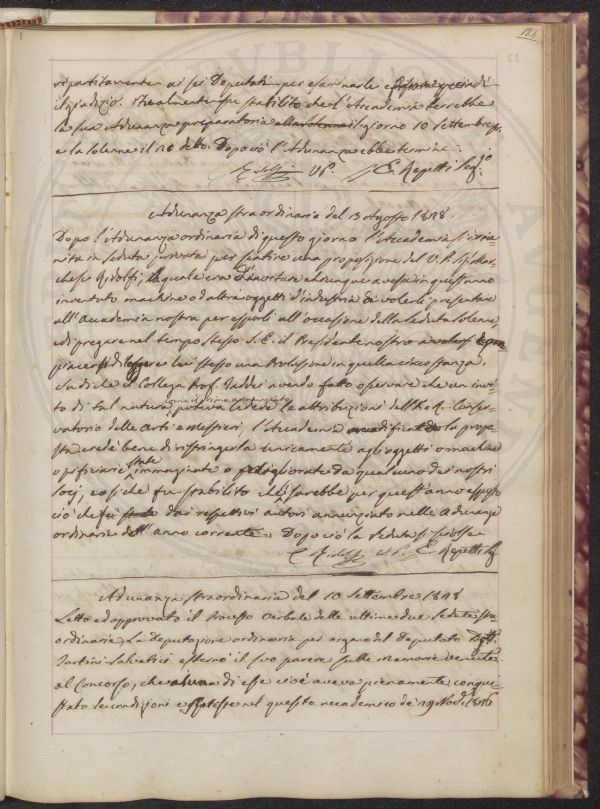 126
ripartitamente ai sei Deputati per esaminarle e quindi
il giudizio. Finalmente fu stabilito che l'Accademia terrebbe
la sua Adunanza preparatoria il giorno 10 Settembre,
e la solenne il 20 detto. Dopo ciò l'Adunanza ebbe termine.
C. Ridolfi VP. E. Repetti Seg.rio
Adunanza straordinaria del 13 Agosto 1828.
Dopo l'Adunanza ordinaria di questo giorno l'Accademia si è riu-
nita in seduta privata per sentire una proposizione del V.P. Sig. Mar-
chese Ridolfi, la quale era d'invitare chiunque avesse in quest'anno
inventato macchine o d'altri oggetti d'industria di volerli presentare
all'Accademia nostra per esporli all'occasione della seduta solenne,
e di pregare nel tempo stesso S.E. il Presidente nostro a
piacersi di leggere lui stesso una Prolusione in quella circostanza.
Su di che il Collega Prof. Taddei avendo fatto osservare che un invi-
to di tal natura, come il primo annunziato, poteva ledere le attribuzioni dell'I. e R. Conser-
vatorio delle Arti e Mestieri, l'Accademia modificando la propo-
sta crede bene di ristringerla unicamente agli oggetti o macchine
o pificiarie state immaginate o migliorate da qualcuno dei nostri
Socj, e così che fu stabilito che sarebbe per quest'anno esposto
ciò che dai respettivi autori annunziato nelle Adunanze
ordinarie dell'anno corrente. Dopo ciò la seduta si sciolse
C. Ridolfi V.P. E. Repetti Seg.
Adunanza straordinaria del 10 Settembre 1828
Letto ed approvato il Processo Verbale delle ultime due sedute stra-
ordinarie, la Deputazione ordinaria per organo del Deputato Dott.
Tartini Salvatici esternò il suo parere sulle Memorie venute
al Concorso, che niuna di esse cioè aveva pienamente conqui-
stato le condizioni nel quesito accademico de' 19 Nov. 1826